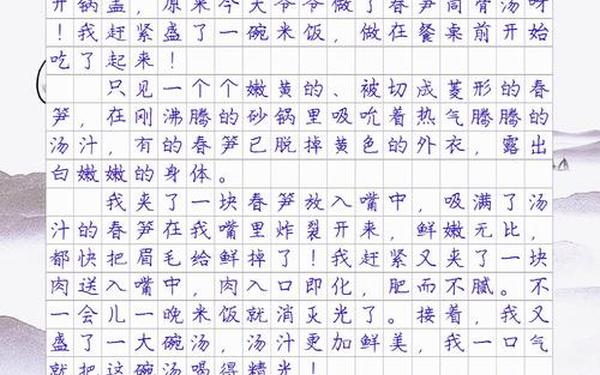 开锅盖，原来今天爷爷做了春笋筒骨汤呀
！我赶紧盛了一碗米饭，做在餐桌前开始
吃了起来！
只见一个个嫩黄的、被切成菱形的春
笋，在刚沸腾的砂锅里吸吮着热气腾腾的
汤汁，有的春笋已脱掉黄色的外衣，露出
白嫩嫩的身体。
我夹了一块春笋放入嘴中，吸满了汤
汁的春笋在我嘴里炸裂开来，鲜嫩无比，
都快把眉毛给鲜掉了！我赶紧又夹了一块
肉送入嘴中，肉入口即化，肥而不腻。不
一会儿一晚米饭就消灭光了。接着，我又
盛了一大碗汤，汤汁更加鲜美，我一口气
就把这碗汤喝得精光！